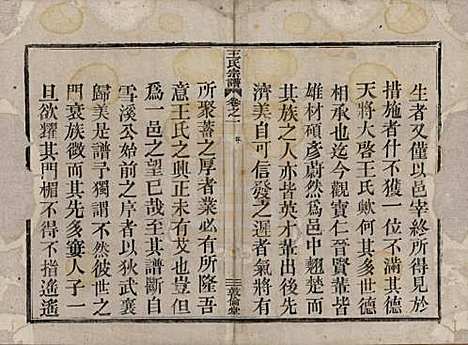 生者又僅以邑宰終所得見於
措施者什不獲一位不滿其德
天將大啓王氏歟何其多世德
承承也迄今觀寶仁晉賢輩皆
雄材碩彥蔚然爲邑中翹楚而
其族之人亦皆英才輩出後先
濟美自可信發之遲者氣將有
王氏宗譜
卷之一
序
三
敦倫堂
所聚蓄之厚者業必有所隆吾
意王氏之興正未有艾也豈徒
爲一邑之望已哉至其譜斷自
雪溪公始前之序者以狄武襄
歸美是譜予獨謂不然彼世之
門衰族微而其先多棄人子一
旦欲耀其門楣不得不搖遙